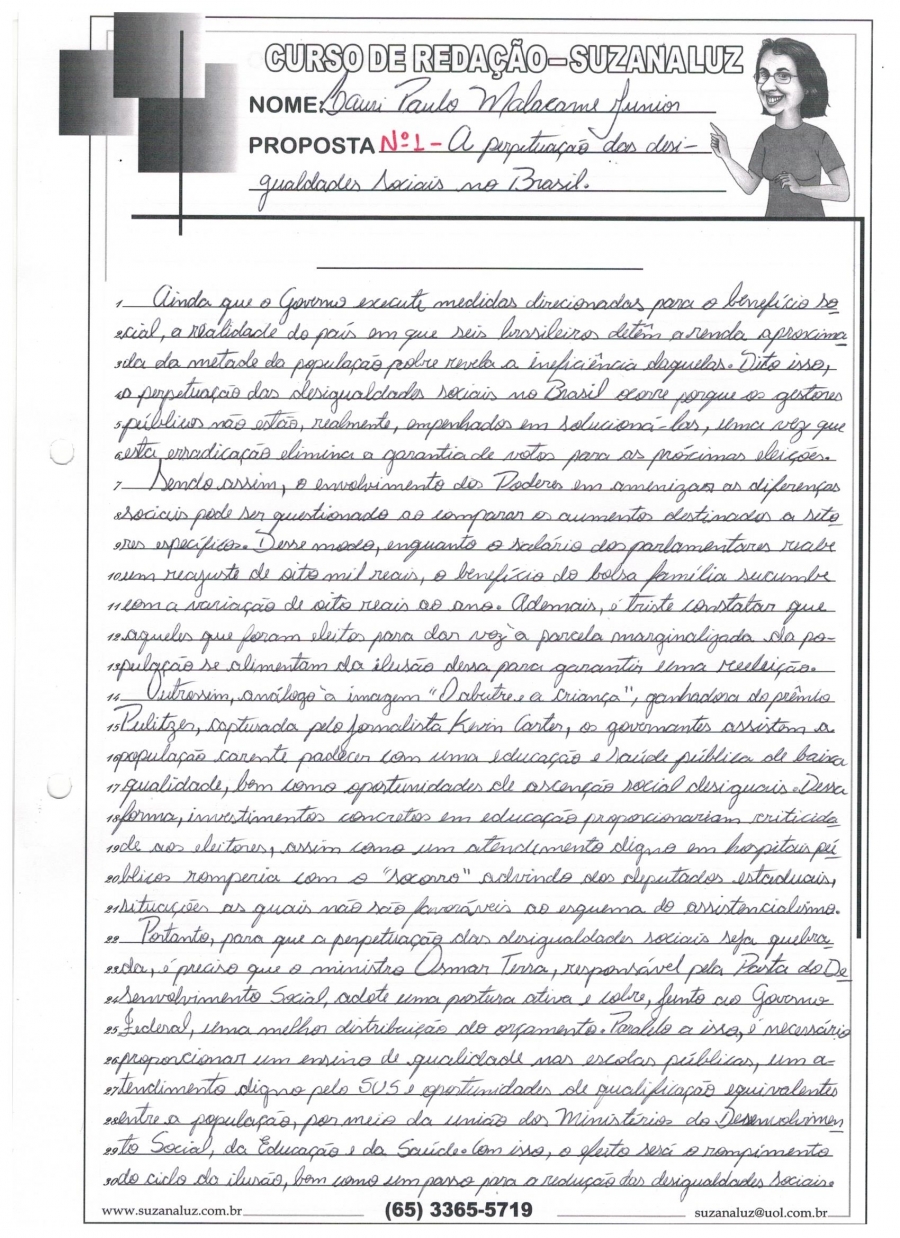 CURSO DE REDAÇÃO-SUZANA LUZ
NOME: Paulo Malacarne Junior
PROPOSTA Nº1 - A perpetuação das desi-
gualdades sociais no Brasil.
1 Ainda que o Governo execute medidas direcionadas para o benefício so
2 cial, a realidade do país em que seis brasileiros detêm a renda aproxima
3 da da metade da população pobre revela a ineficiência daquelas. Dito isso,
4 a perpetuação das desigualdades sociais no Brasil ocorre porque os gestores
5 públicos não estão, realmente, empenhados em solucioná-las, uma vez que
6 esta erradicação elimina a garantia de votos para as próximas eleições.
7 Sendo assim, o envolvimento dos Poderes em amenizar as diferenças
8 sociais pode ser questionado ao comparar os aumentos destinados a seto
9 res específicos. Desse modo, enquanto o salário dos parlamentares recebe
10 um reajuste de oito mil reais, o benefício do bolsa família sucumbe
11 com a variação de oito reais ao ano. Ademais, é triste constatar que
12 aqueles que foram eleitos para dar voz à parcela marginalizada da po-
13 pulação se alimentam da ilusão dessa para garantir uma reeleição.
14 Outrossim, análogo à imagem "O abutre e a criança", ganhadora do prêmio
15 Pulitzer, capturada pelo jornalista Kevin Carter, os governantes assistem a
16 população carente padecer com uma educação e saúde pública de baixa
17 qualidade, bem como oportunidades de ascenção social desiguais. Dessa
18 forma, investimentos concretos em educação proporcionariam criticida
19 de aos eleitores, assim como um atendimento digno em hospitais pú
20 blicos romperia com o "socorro" advindo dos deputados estaduais,
21 situações as quais não são favoráveis ao esquema do assistencialismo.
22 Portanto, para que a perpetuação das desigualdades sociais seja quebra
23 da, é preciso que o ministro Osmar Terra, responsável pela Pasta do De
24 senvolvimento Social, adote uma postura ativa e cobre, junto ao Governo
25 Federal, uma melhor distribuição do orçamento. Paralelo a isso, é necessário
26 proporcionar um ensino de qualidade nas escolas públicas, um a-
27 tendimento digno pelo SUS e oportunidades de qualificação equivalentes
28 entre a população, por meio da união dos Ministérios do Desenvolvimen
29 to Social, da Educação e da Saúde. Com isso, o efeito será o rompimento
30 do ciclo da ilusão, bem como um passo para a redução das desigualdades sociais.
www.suzanaluz.com.br (65) 3365-5719 suzanaluz@uol.com.br